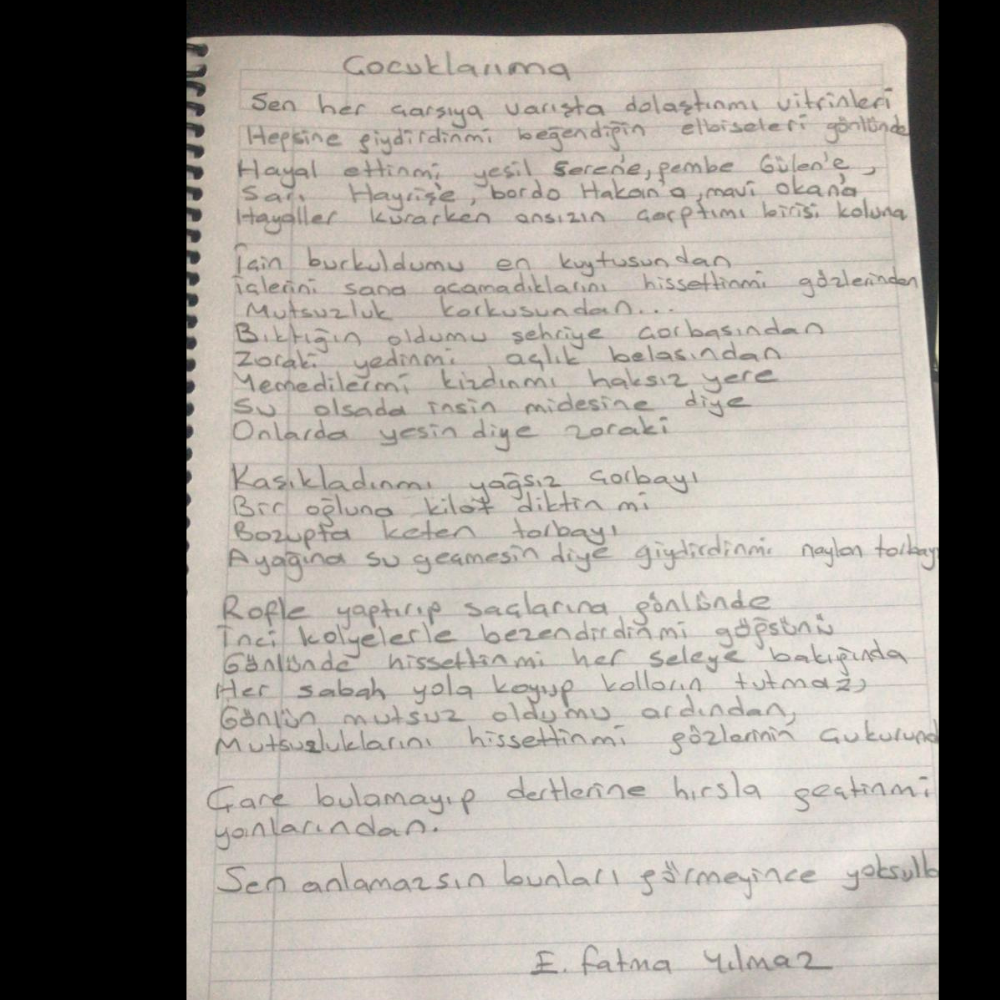 Çocuklarıma
Sen her çarşıya varışta dolaştınmı vitrinleri
Hepsine giydirdinmi beğendiğin elbiseleri gönlünde
Hayal ettinmi yeşil Seren'e, pembe Gülen'e,
Sarı Hayriş'e, bordo Hakan'a, mavi Okan'a
Hayaller kurarken ansızın çarptımı birisi koluna
İçin burkuldumu en kuytusundan
içlerini sana açamadıklarını hissettinmi gözlerinden
Mutsuzluk korkusundan...
Bıktığın oldumu şehriye çorbasından
Zoraki yedinmi açlık belasından
Yemedilermi kızdınmı haksız yere
Su olsada insin midesine diye
Onlarda yesin diye zoraki
Kaşıkladınmı yağsız çorbayı
Bir oğluna kilot diktin mi
Bozupta keten torbayı
Ayağına su geçmesin diye giydirdinmi naylon torbay
Röfle yaptırıp saçlarına gönlünde
İnci kolyelerle bezendirdinmi göğsünü
Gönlünde hissettinmi her seleye bakışında
Her sabah yola koyup kolların tutmaz,
Gönlün mutsuz oldumu ardından,
Mutsuzluklarını hissettinmi gözlerinin çukurund
Çare bulamayıp dertlerine hırsla geçtinmi
yanlarından.
Sen anlamazsın bunları görmeyince yoksullu
E. Fatma Yılmaz